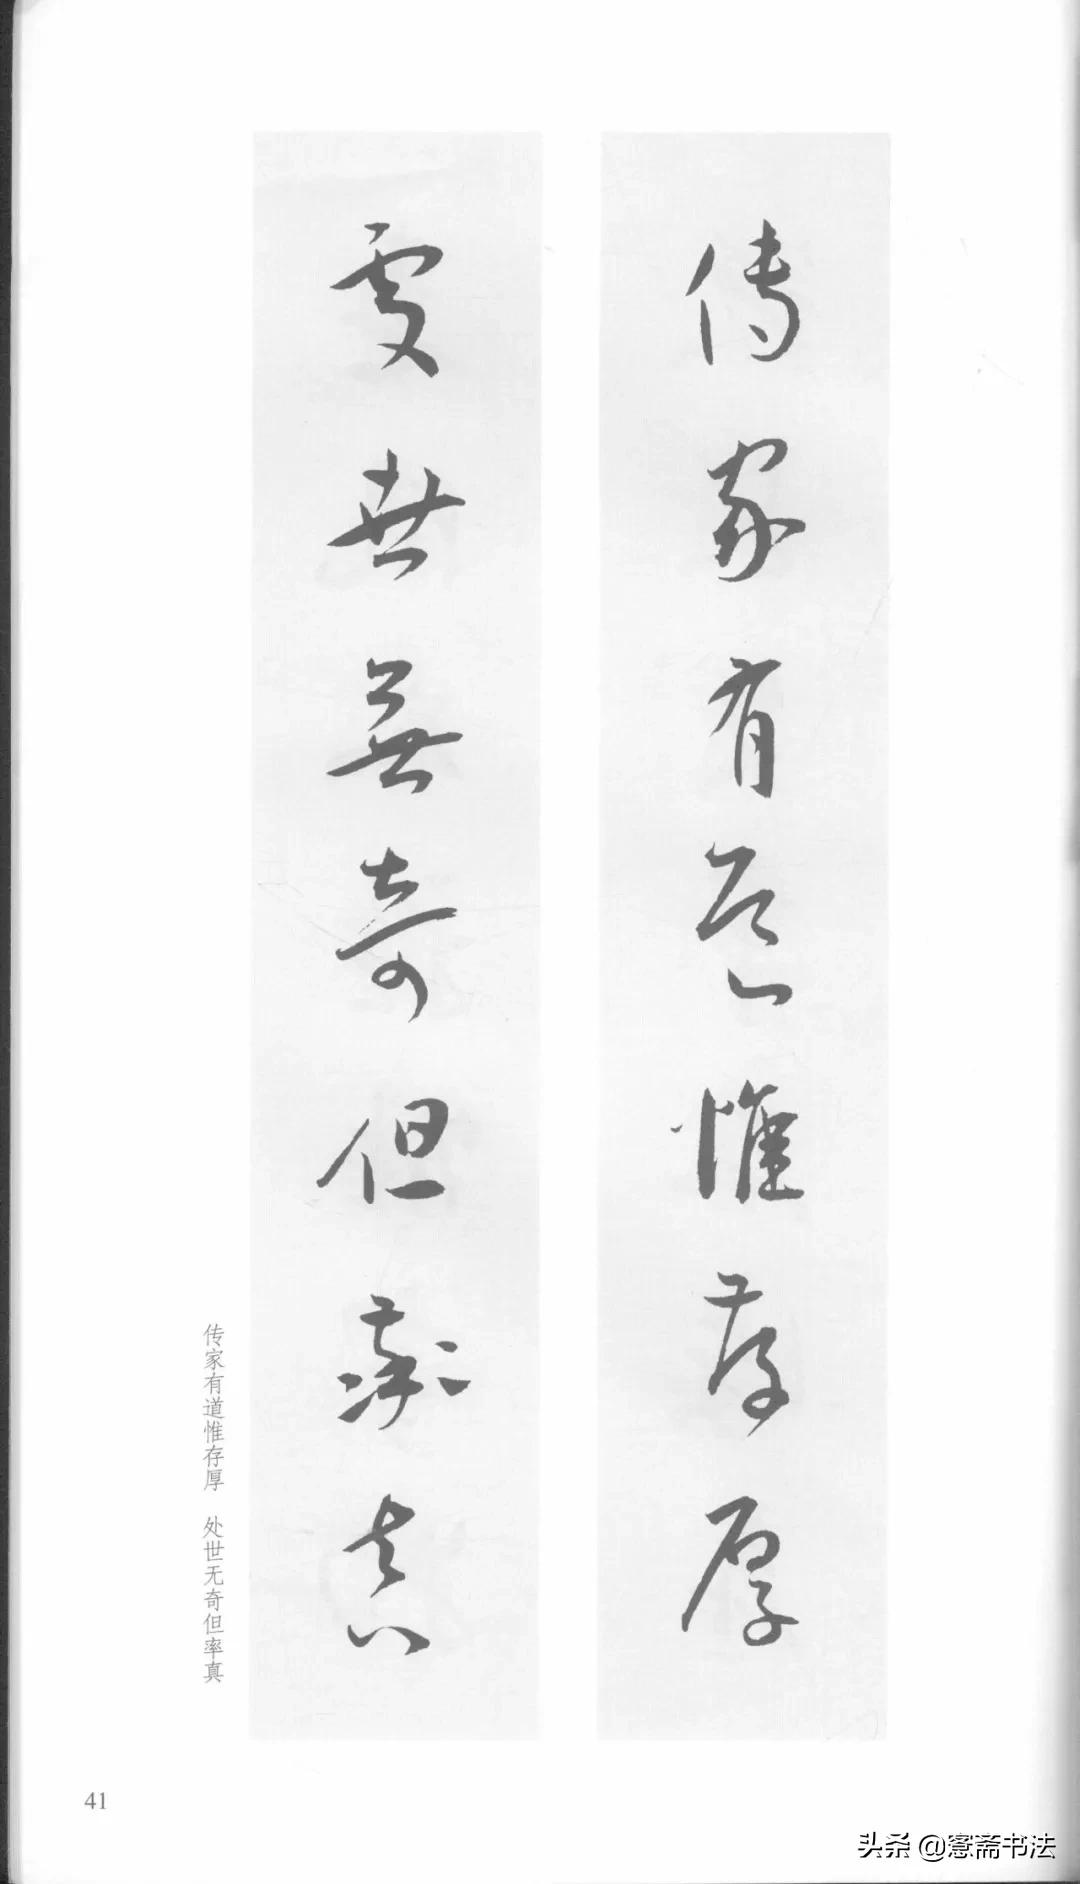 傳家有道惟存厚
處世無奇但率真
传家有道惟存厚 处世无奇但率真
41
头条 @窓斋书法